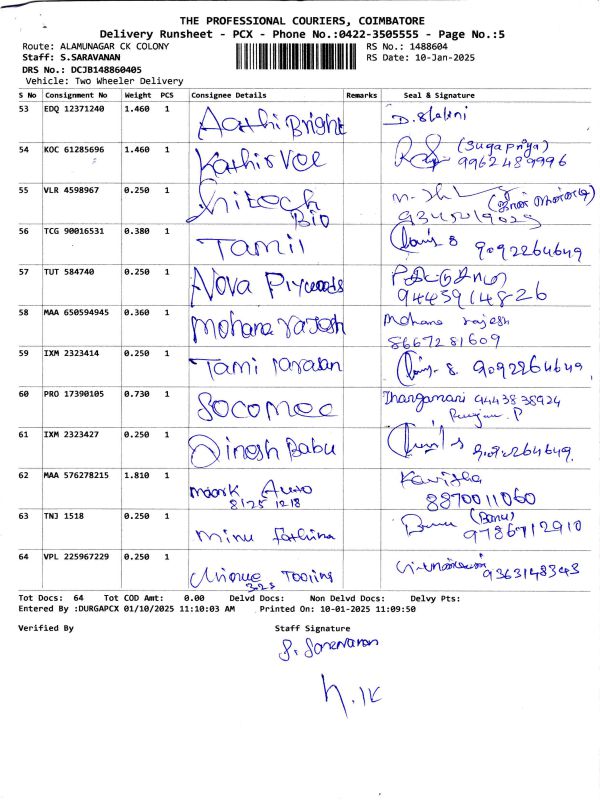 THE PROFESSIONAL COURIERS, COIMBATORE
Delivery Runsheet - PCX - Phone No.:0422-3505555 - Page No.:5
Route: ALAMUNAGAR CK COLONY RS No.: 1488604
Staff: S.SARAVANAN RS Date: 10-Jan-2025
DRS No.: DCJB148860405
Vehicle: Two Wheeler Delivery
S No Consignment No Weight PCS Consignee Details Remarks Seal & Signature
53 EDQ 12371240 1.460 1 Aathi Bright
54 KOC 61285696 1.460 1 Kathir Vel (Sugapriya)
9962489996
55 VLR 4598967 0.250 1 Hitech
Bio
56 TCG 90016531 0.380 1 Tamil 9092264649
57 TUT 584740 0.250 1 Nova Plywoods
9445914826
58 MAA 650594945 0.360 1 Mohana rajesh Mohana rajesh
8667281609
59 IXM 2323414 0.250 1 9092264649
60 PRO 17390105 0.730 1 Socomec Thangamani 9443838924
61 IXM 2323427 0.250 1 Dinesh Babu 9092264649
62 MAA 576278215 1.810 1 Kavitha
8125 1218 8870011060
63 TNJ 1518 0.250 1 Minu fathima (Banu)
9786712910
64 VPL 225967229 0.250 1 9363148343
Tot Docs: 64 Tot COD Amt: 0.00 Delvd Docs: Non Delvd Docs: Delvy Pts:
Entered By :DURGAPCX 01/10/2025 11:10:03 AM Printed On: 10-01-2025 11:09:50
Verified By Staff Signature
S. Saravanan